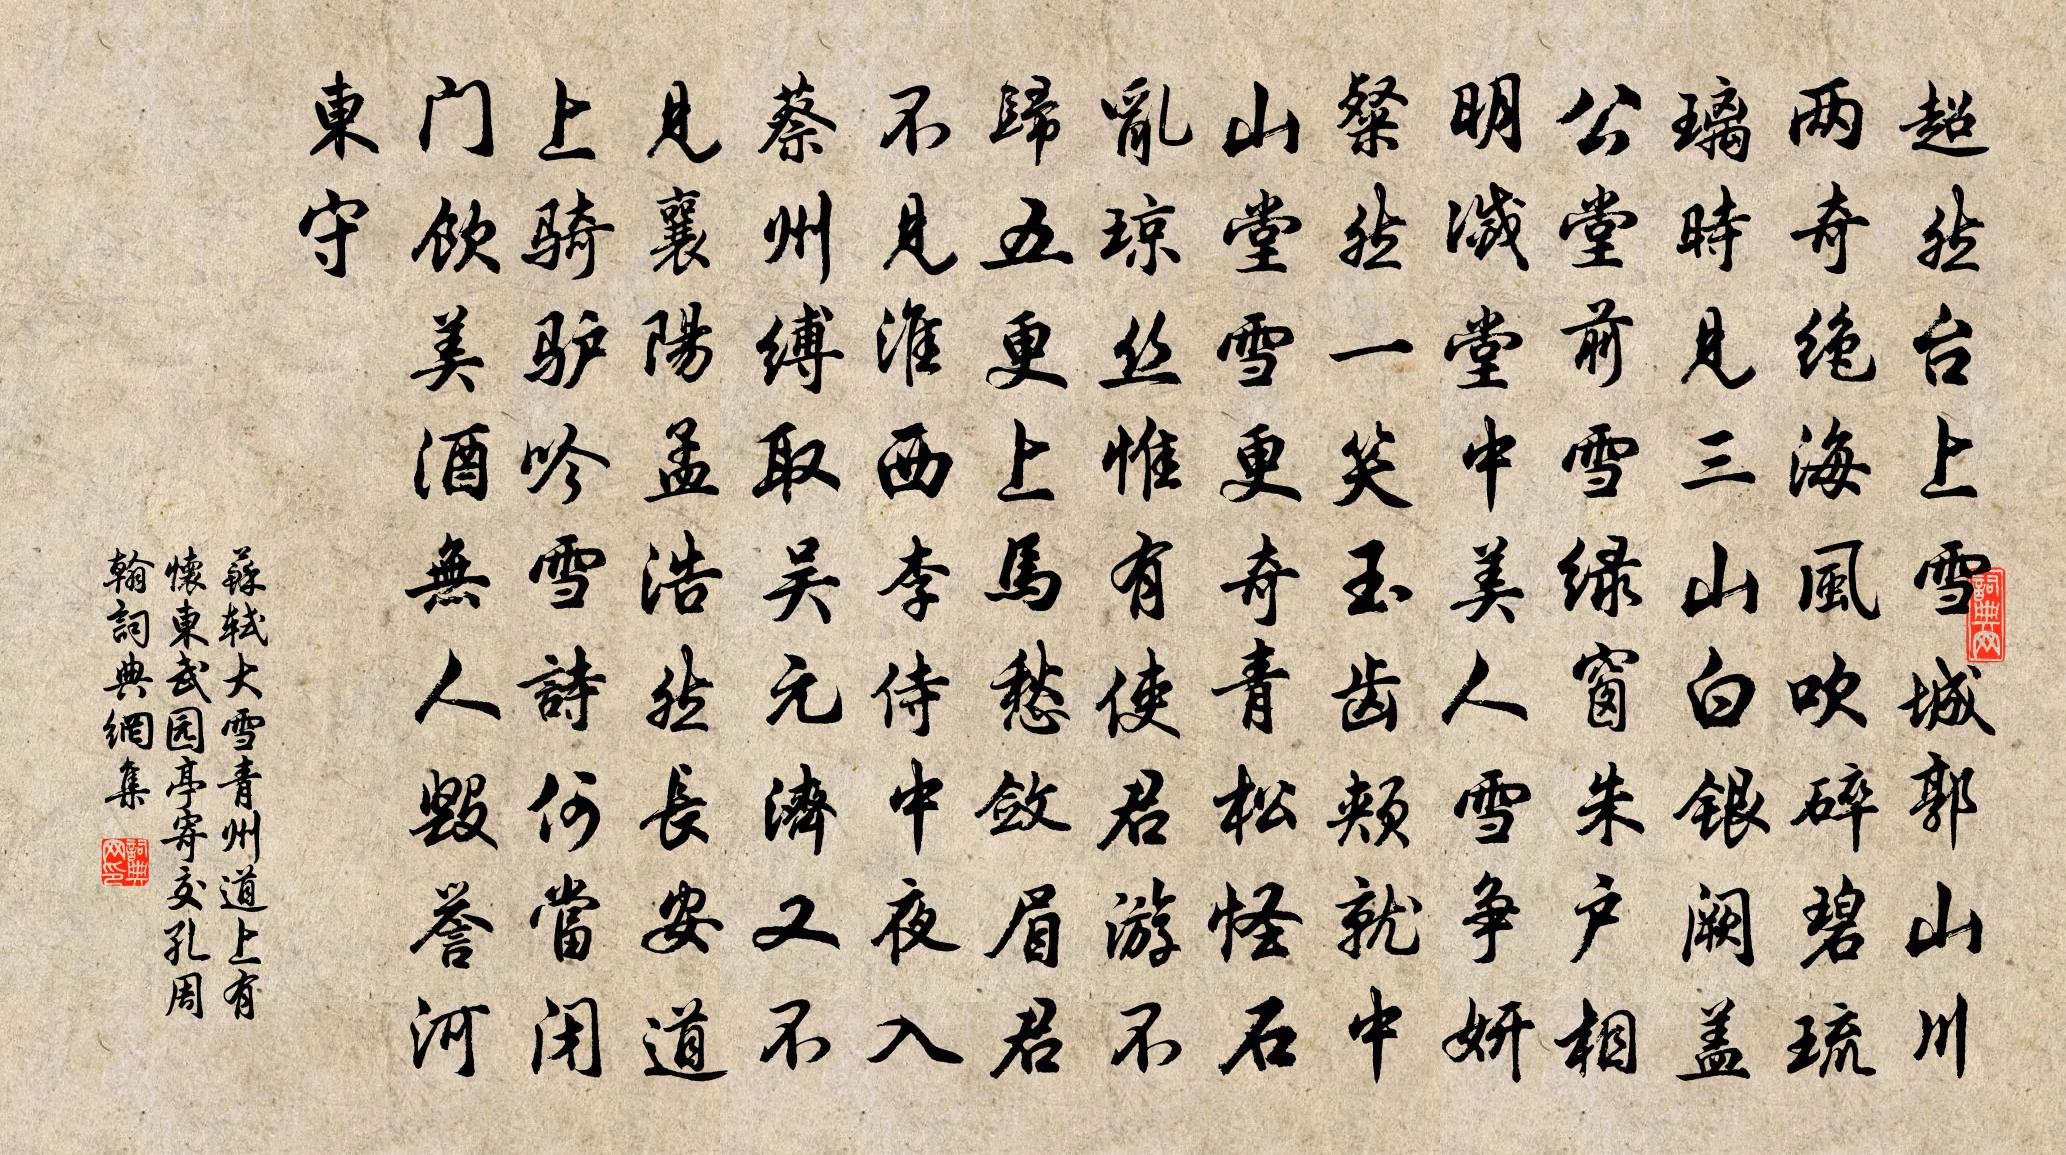 超然台上雪城郭山川
两奇绝海風吹碎碧琉
璃時見三山白銀阙盖
公堂前雪绿窗朱户相
明滅堂中美人雪争妍
粲然一笑玉齿頰就中
山堂雪更奇青松怪石
亂琼丝惟有使君游不
歸五更上馬愁斂眉君
不見淮西李侍中夜入
蔡州缚取吴元濟又不
見襄陽孟浩然長安道
上骑驴吟雪詩何當閉
门飲美酒無人毁誉河
東守
蘇轼大雪青州道上有
懷東武园亭寄交孔周
翰詞典網集
詞典网
詞典网印